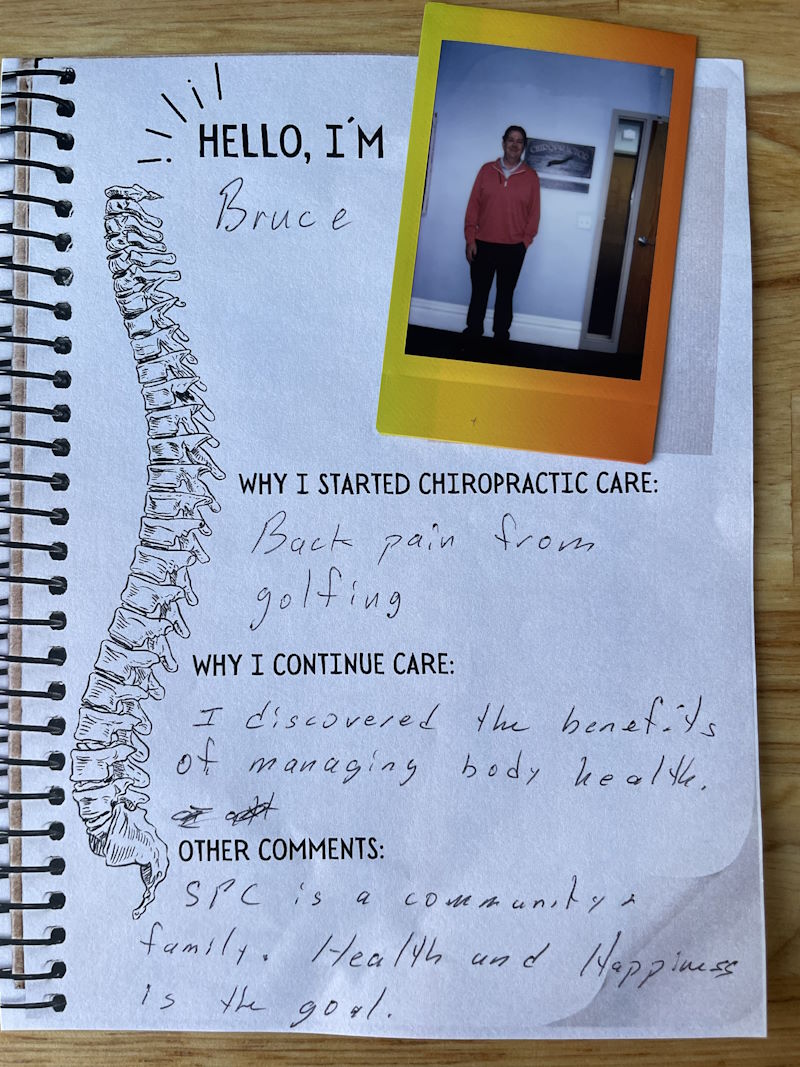 HELLO, I'M
Bruce
CHIROPRACTOR
WHY I STARTED CHIROPRACTIC CARE:
Back pain from
golfing
WHY I CONTINUE CARE:
I discovered the benefits
of managing body health.
OTHER COMMENTS:
SPC is a community &
family. Health and Happiness
is the goal.